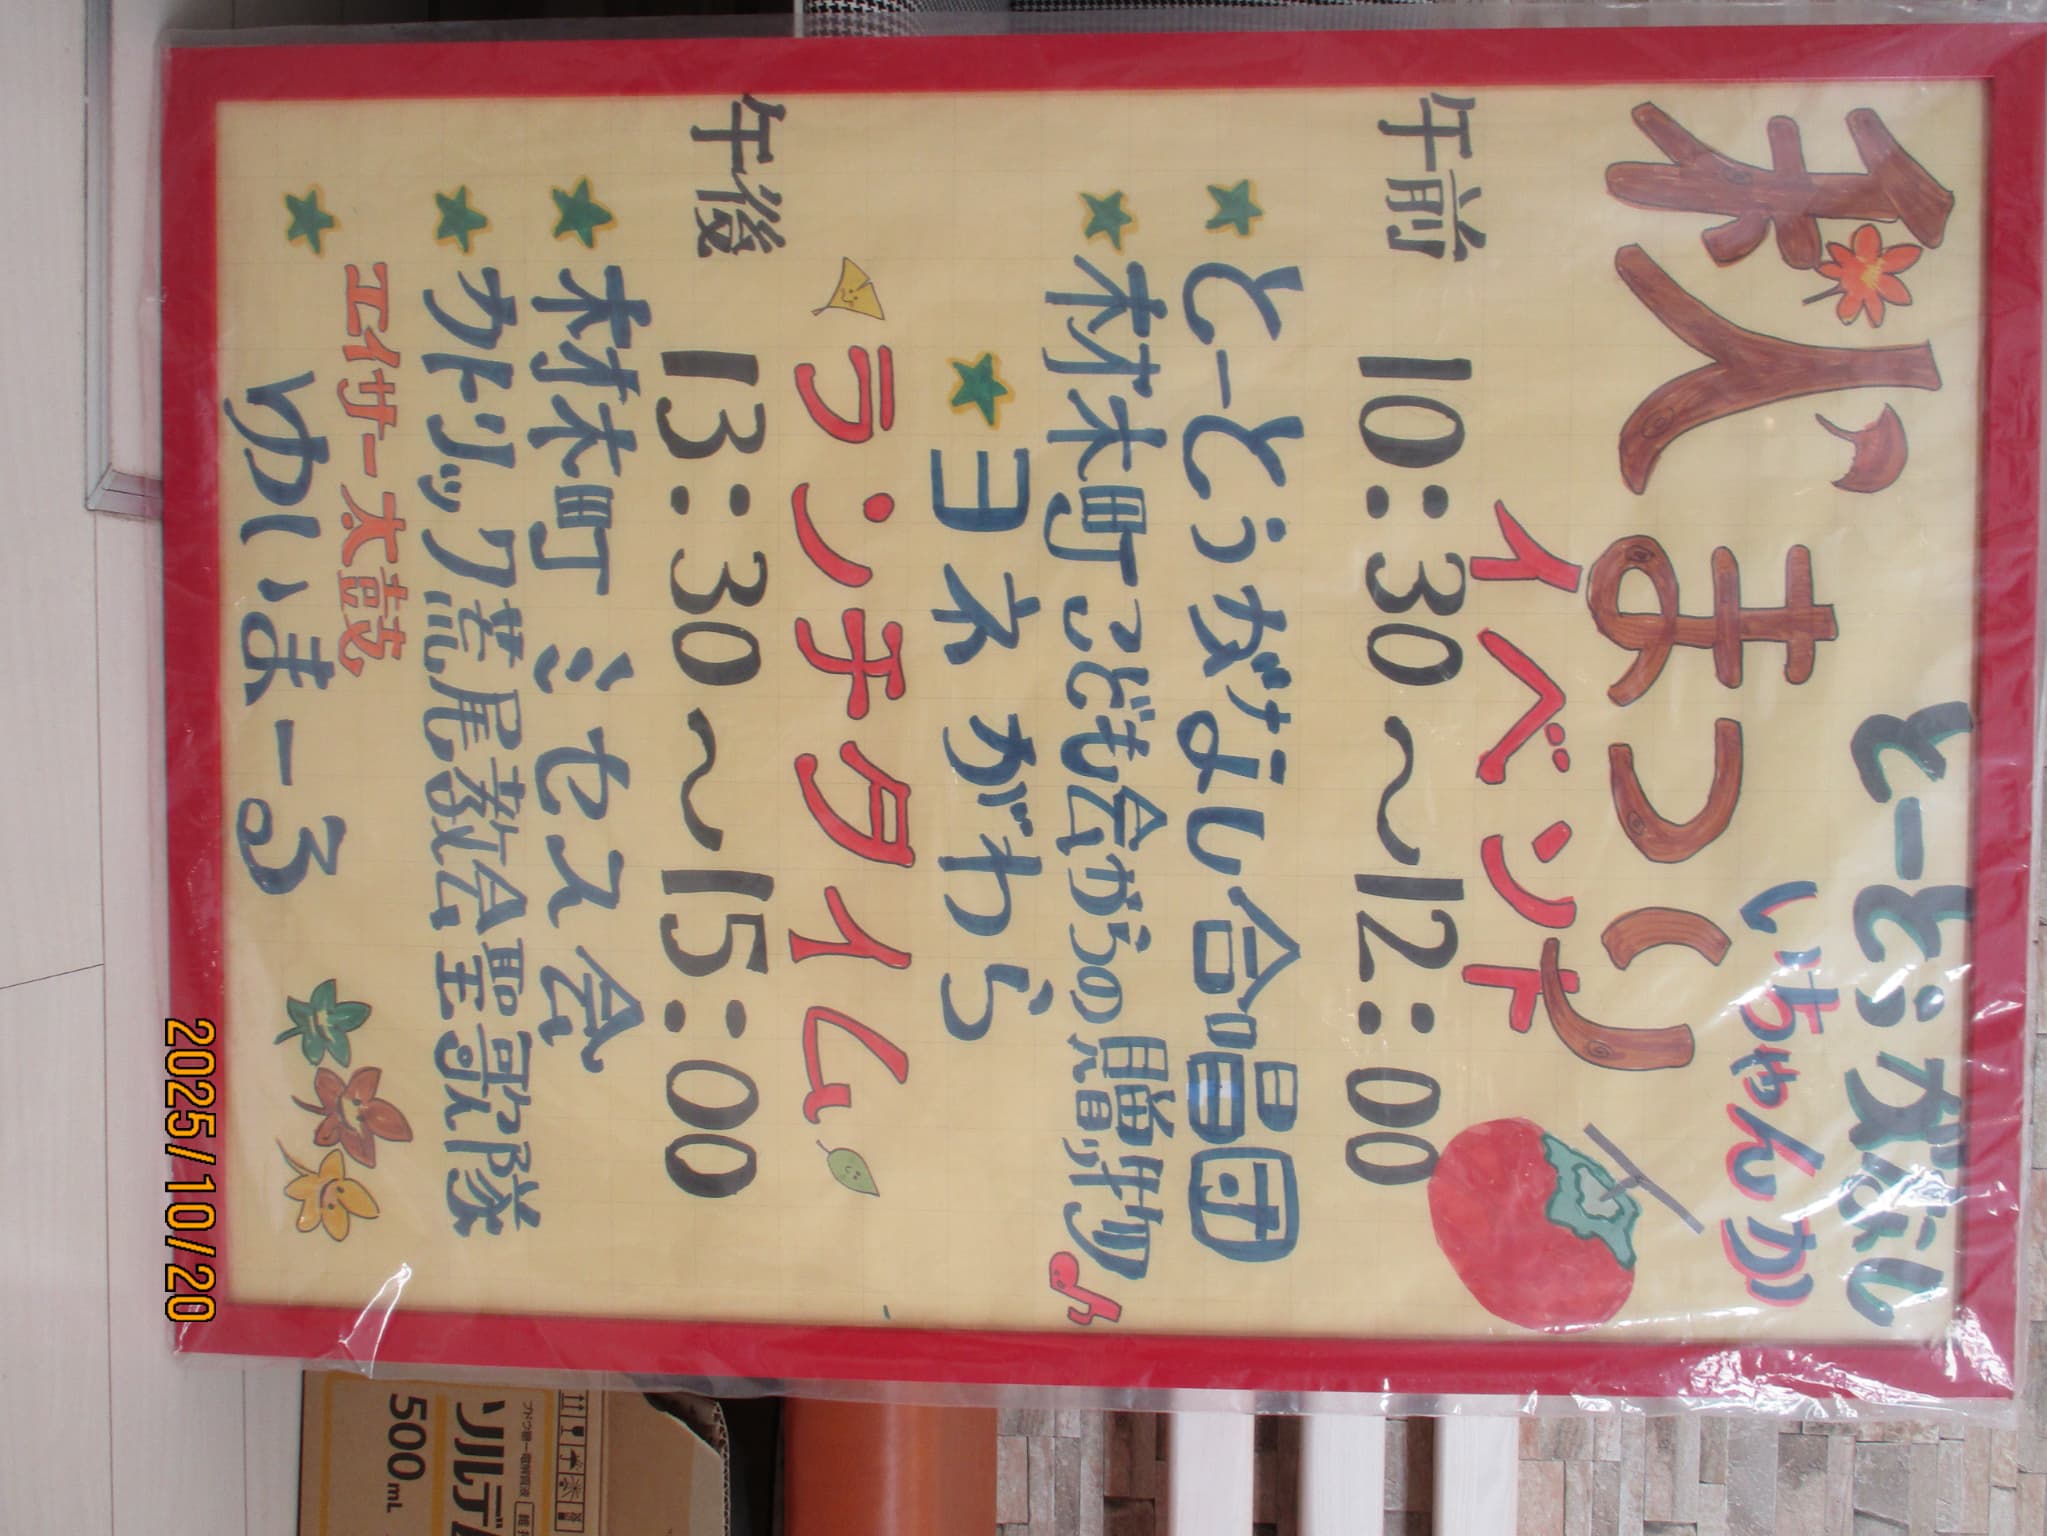 とーとぅがなし
いちゃんか
秋まつり
イベント
午前 10:30～12:00
★とーとぅがなし合唱団
★材木町こども会からの贈り物
★ヨネがわら
ランチタイム
午後 13:30～15:00
★材木町 ミセス会
★カトリック荒尾教会聖歌隊
エイサー太鼓
★ゆいまーる
2025/10/20
ソルデ
500mL